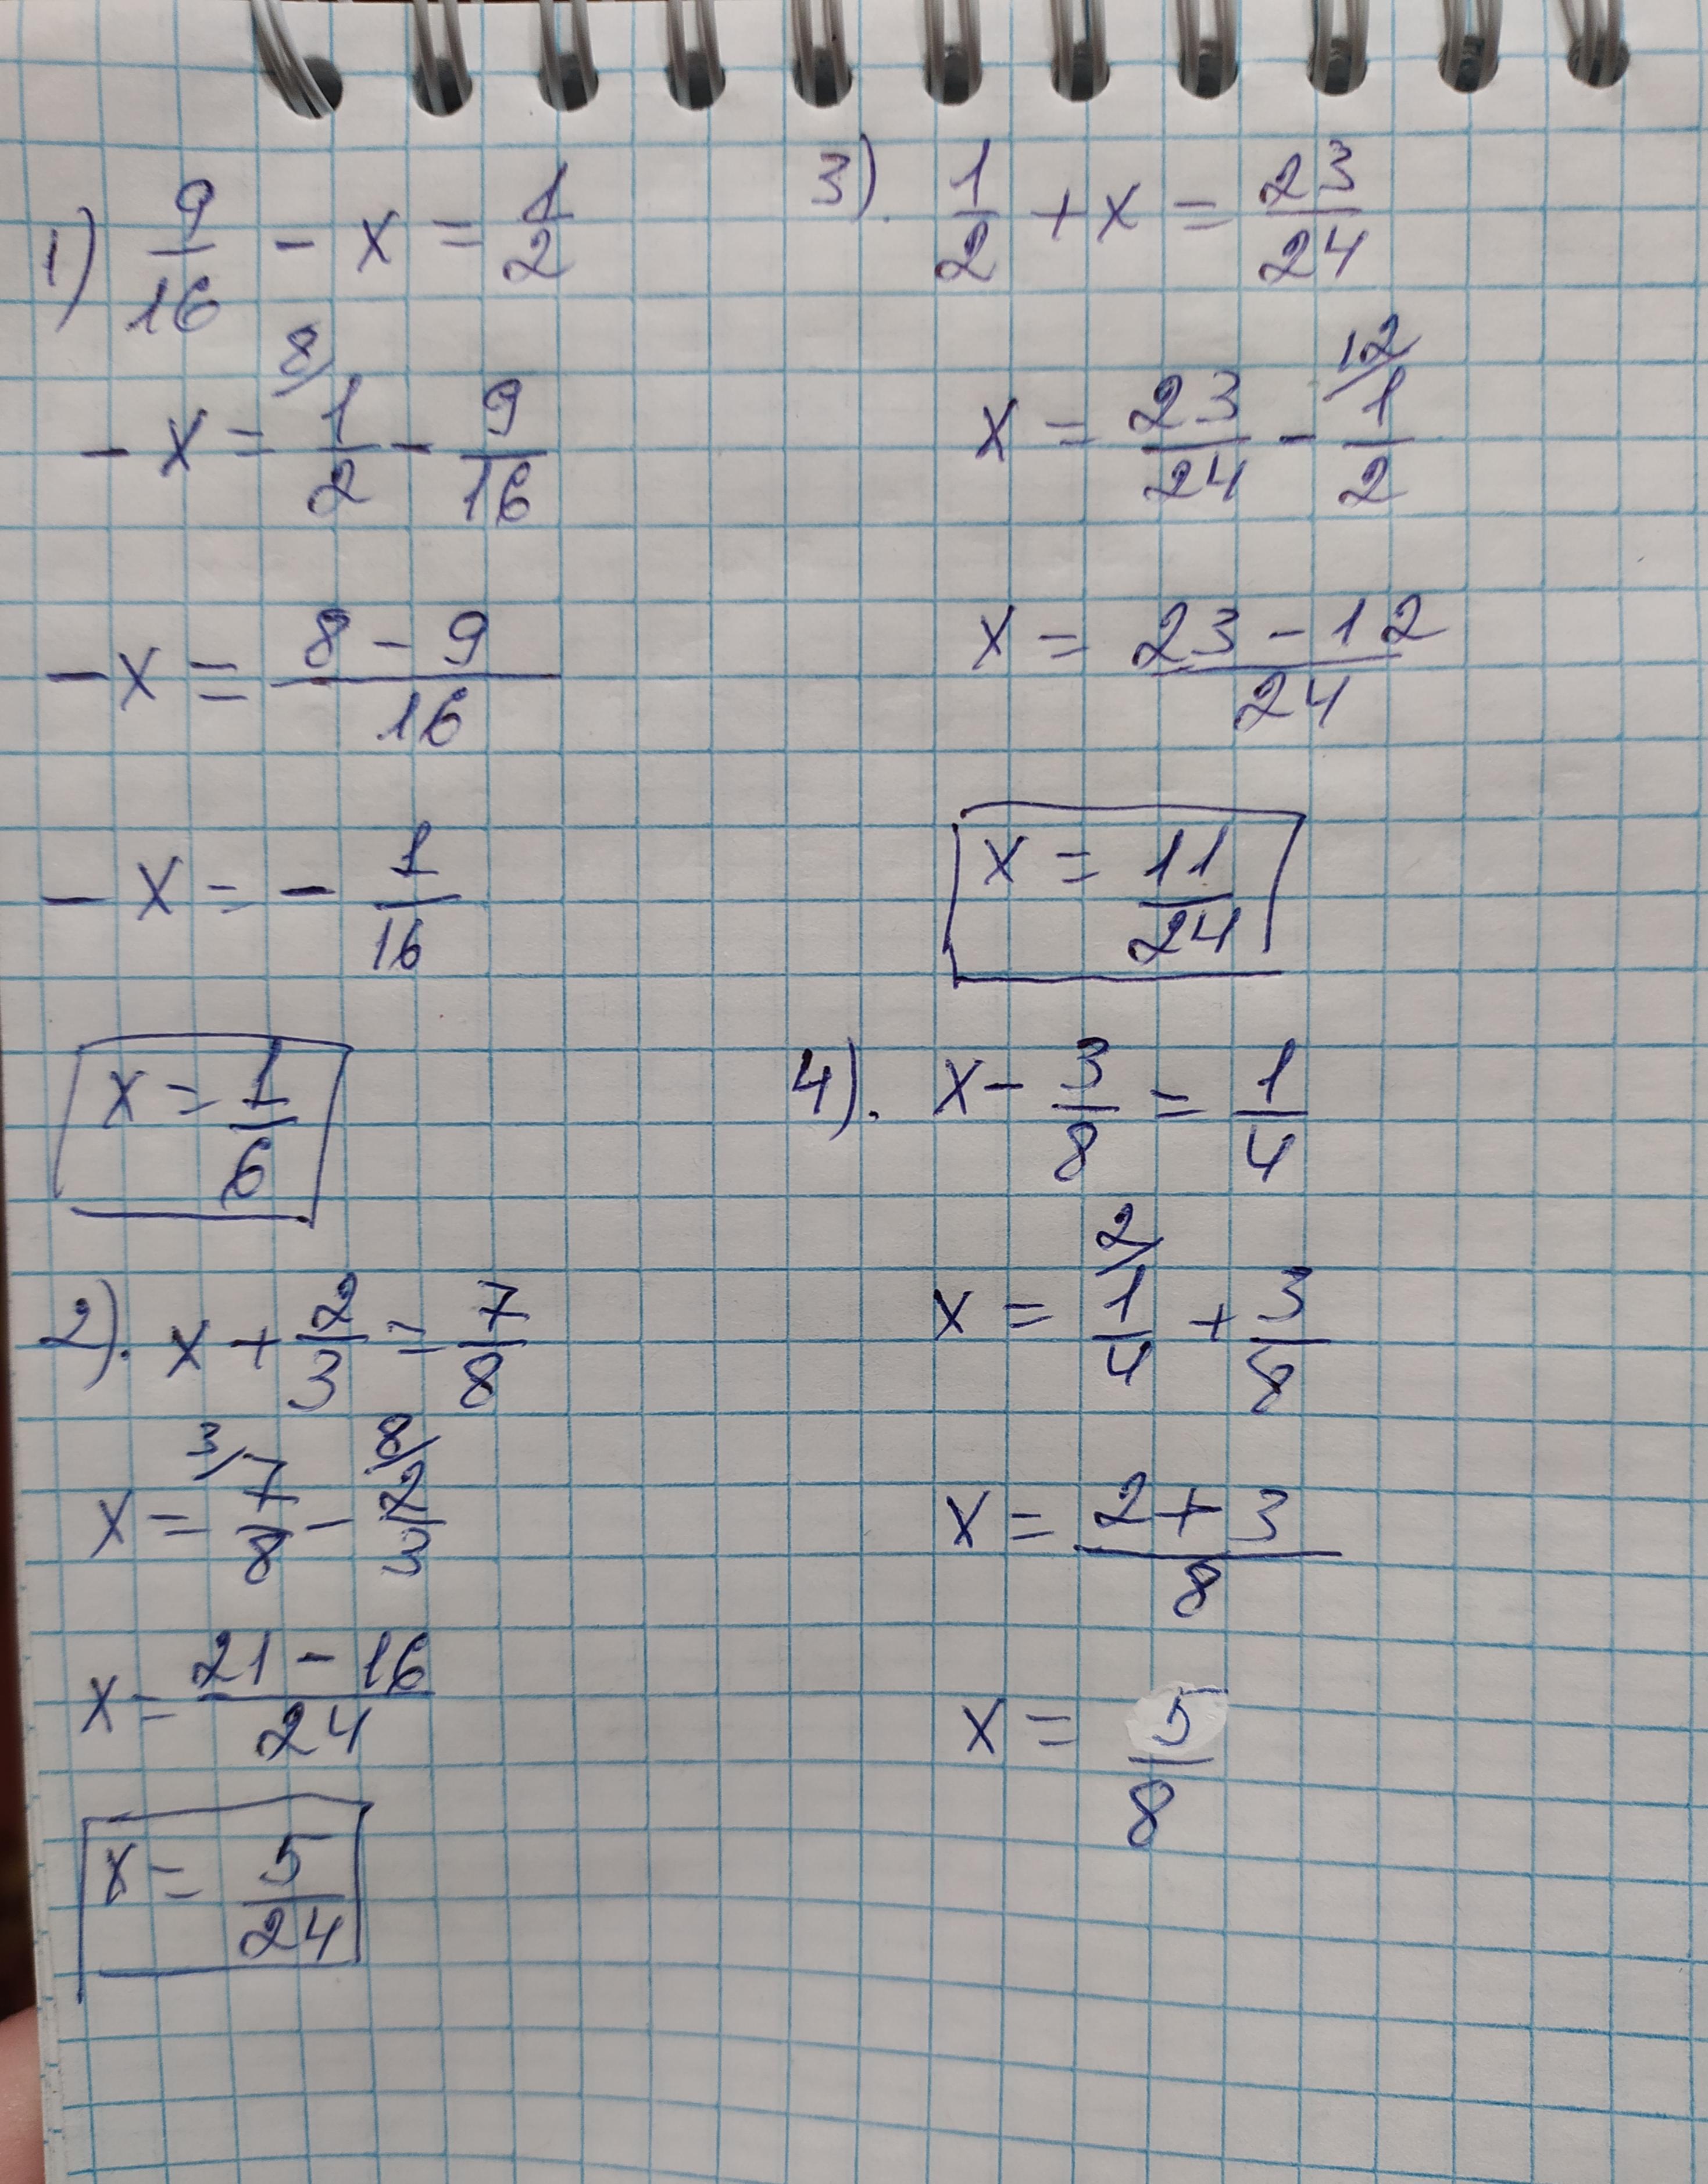 1) 9/16 - x = 1/2
- x = 8/ 1/2 - 9/16
- x = (8 - 9)/16
- x = - 1/16
x = 1/6
2). x + 2/3 = 7/8
x = 3/ 7/8 - 8/ 2/3
x = (21 - 16)/24
x = 5/24
3). 1/2 + x = 23/24
x = 23/24 - 12/ 1/2
x = (23 - 12)/24
x = 11/24
4). x - 3/8 = 1/4
x = 2/ 1/4 + 3/8
x = (2 + 3)/8
x = 5/8